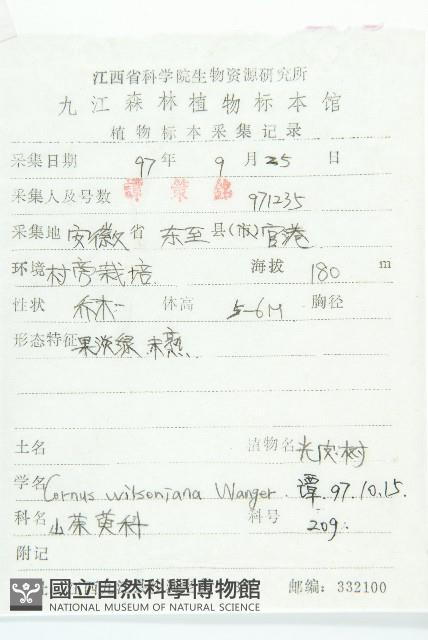 江西省科学院生物资源研究所
九江森林植物标本馆
植物标本采集记录
采集日期 97年 9月25日
采集人及号数 譚策銘 971235
采集地 安徽省 东至县(市)官港
环境 村旁栽培 海拔 180 m
性状 乔木 体高 5-6M 胸径
形态特征 果淡绿 未熟.
土名 植物名 光皮树
学名 Cornus wilsoniana Wanger. 谭.97.10.15.
科名 山茱萸科 科号 209.
附记
邮编: 332100
國立自然科學博物館
NATIONAL MUSEUM OF NATURAL SCIENCE